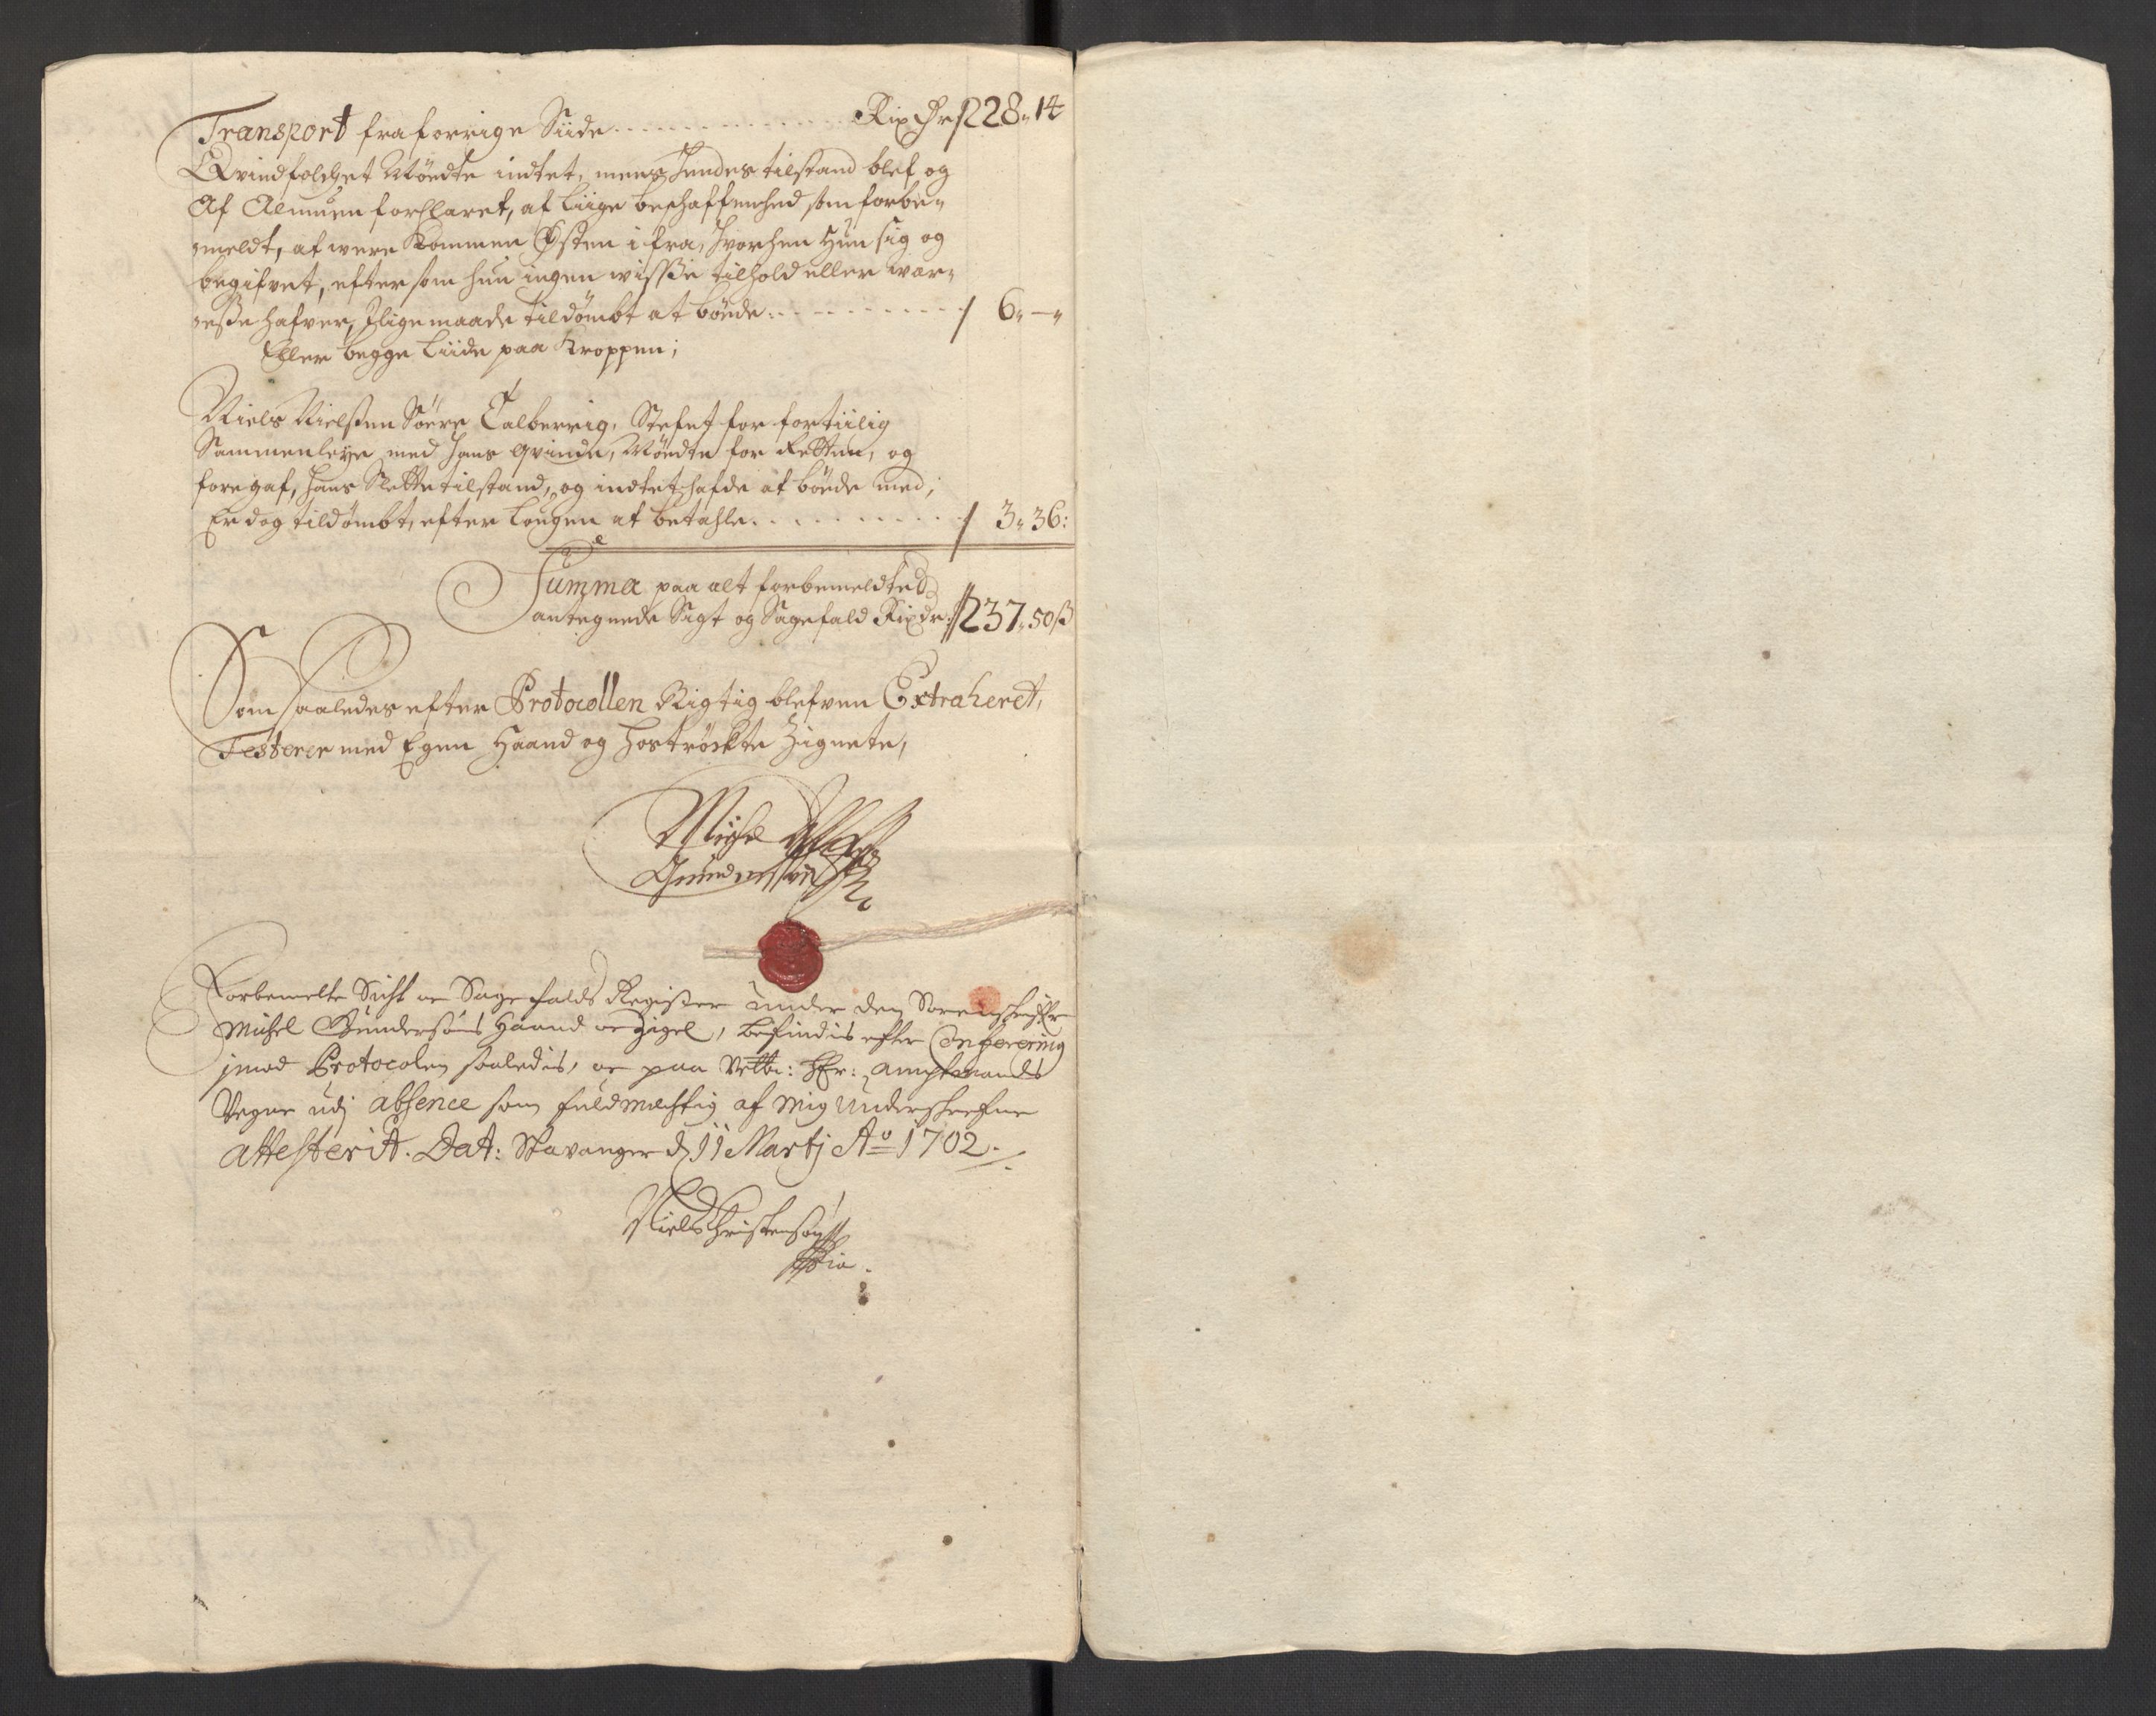 Transport fra forrige Siide . . . . . . . . . . Rixdr 228 „ 14
Qvindfolchet Møedte indtet, mens hendes tilstand blef og
Af Almuen forklaret, af liige beschaffenhed som forbe„
meldt, at were kommen Østen ifra, hvorhen Hun sig og
begifvet, eftersom hun ingen wisse tilhold eller wær„
relse hafver, Iligemaade tildømbt at bøede . . . . . . . . 6 „ — „
Eller begge Liide paa Kroppen;
Niels Nielssen Søere Talbevig, Stefnt for fortiilig
Sammenleye med hans qvinde, Møedte for Retten, og
foregaf, hans Slette tilstand, og indtet hafde at bøede med;
Er dog tildømbt, efter Lougen at betahle . . . . . . . . . 3 „ 36:
Summa paa alt forbemeldted
antegnede Sigt og Sagefald Rixdr: 237 „ 50 ß
Som saaledes efter Protocollen Rigtig blefven Extraheret,
Testerer med Egen Haand og hostrøckte Zignete,
Michel
Gundersøn
Forbemelte Sicht oc Sagefalds Register under den Sorenschrifver
Michel Gundersøns Haand oc Zigel, befindis efter Conferering
imod Protocolen saaledis, oc paa Velbr: Hr: Amptmands
Vegne udj absence som fuldmechtig af mig underschrefne
attesterit. Dat: Stavanger d 11 Martj Ao 1702.
Niels Christensøn